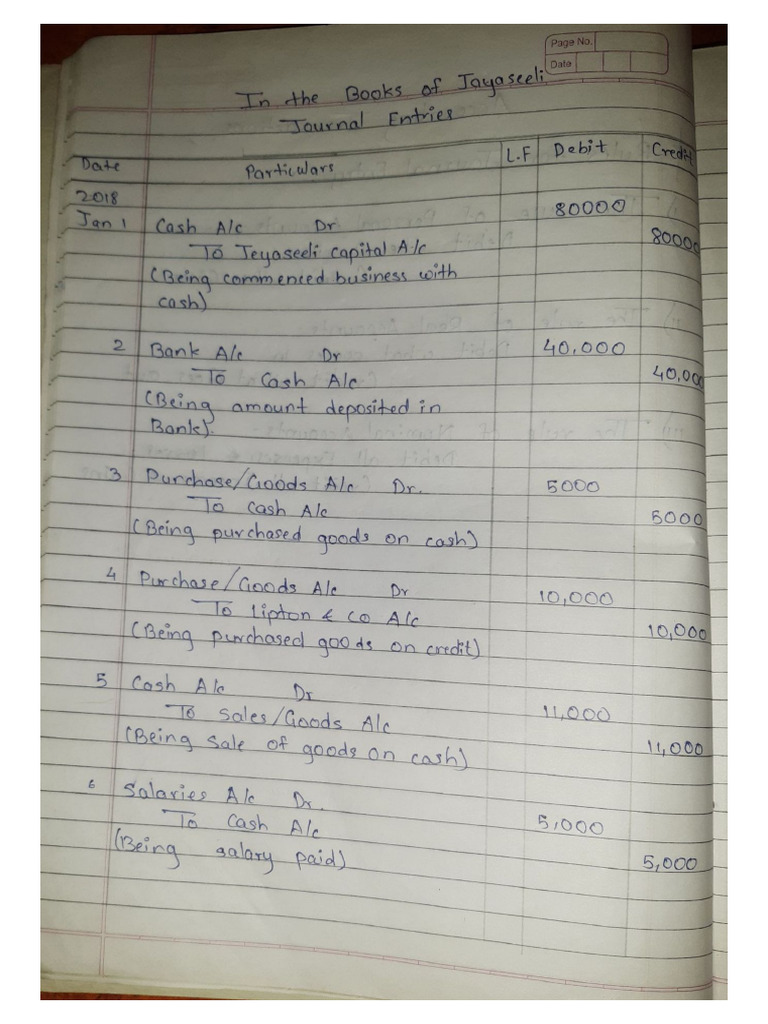 Page No.
Date
In the Books of Jayaseeli
Journal Entries
Date Particulars L.F Debit Credit
2018
Jan 1 Cash A/c Dr 80000
To Jeyaseeli capital A/c 80000
(Being commenced business with
cash)
2 Bank A/c Dr 40,000
To Cash A/c 40,000
(Being amount deposited in
Bank).
3 Purchase/Goods A/c Dr. 5000
To Cash A/c 5000
(Being purchased goods on cash)
4 Purchase/Goods A/c Dr 10,000
To Lipton & Co A/c 10,000
(Being purchased goods on credit)
5 Cash A/c Dr 11,000
To Sales/Goods A/c 11,000
(Being Sale of goods on cash)
6 Salaries A/c Dr. 5,000
To Cash A/c 5,000
(Being salary paid)